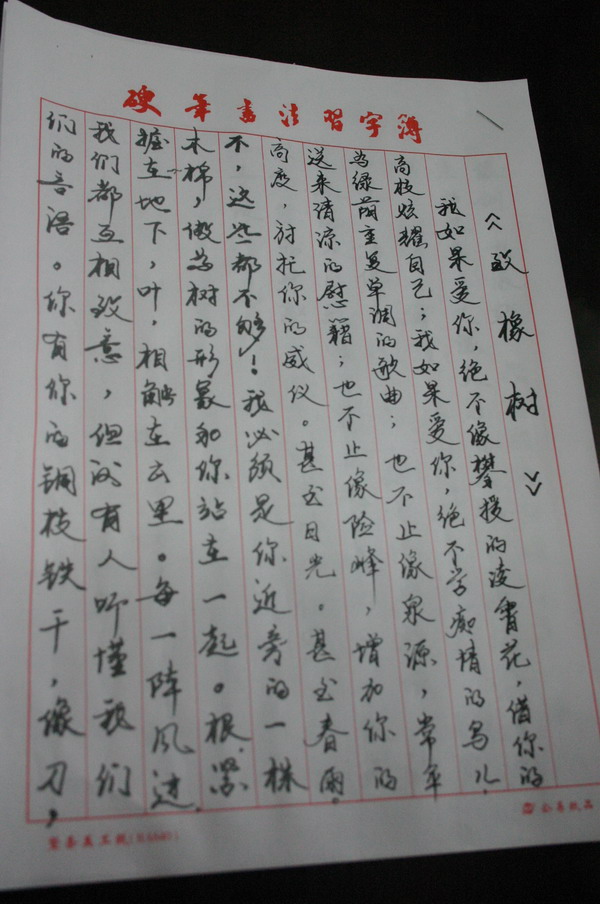 硬筆書法習字簿
《致橡树》
我如果爱你，绝不像攀援的凌霄花，借你的
高枝炫耀自己；我如果爱你，绝不学痴情的鸟儿，
为绿荫重复单调的歌曲；也不止像泉源，常年
送来清凉的慰籍；也不止像险峰，增加你的
高度，衬托你的威仪。甚至日光。甚至春雨。
不，这些都不够！我必须是你近旁的一株
木棉，做为树的形象和你站在一起。根，紧
握在地下，叶，相触在云里。每一阵风过，
我们都互相致意，但没有人听懂我们
们的言语。你有你的铜枝铁干，像刀，